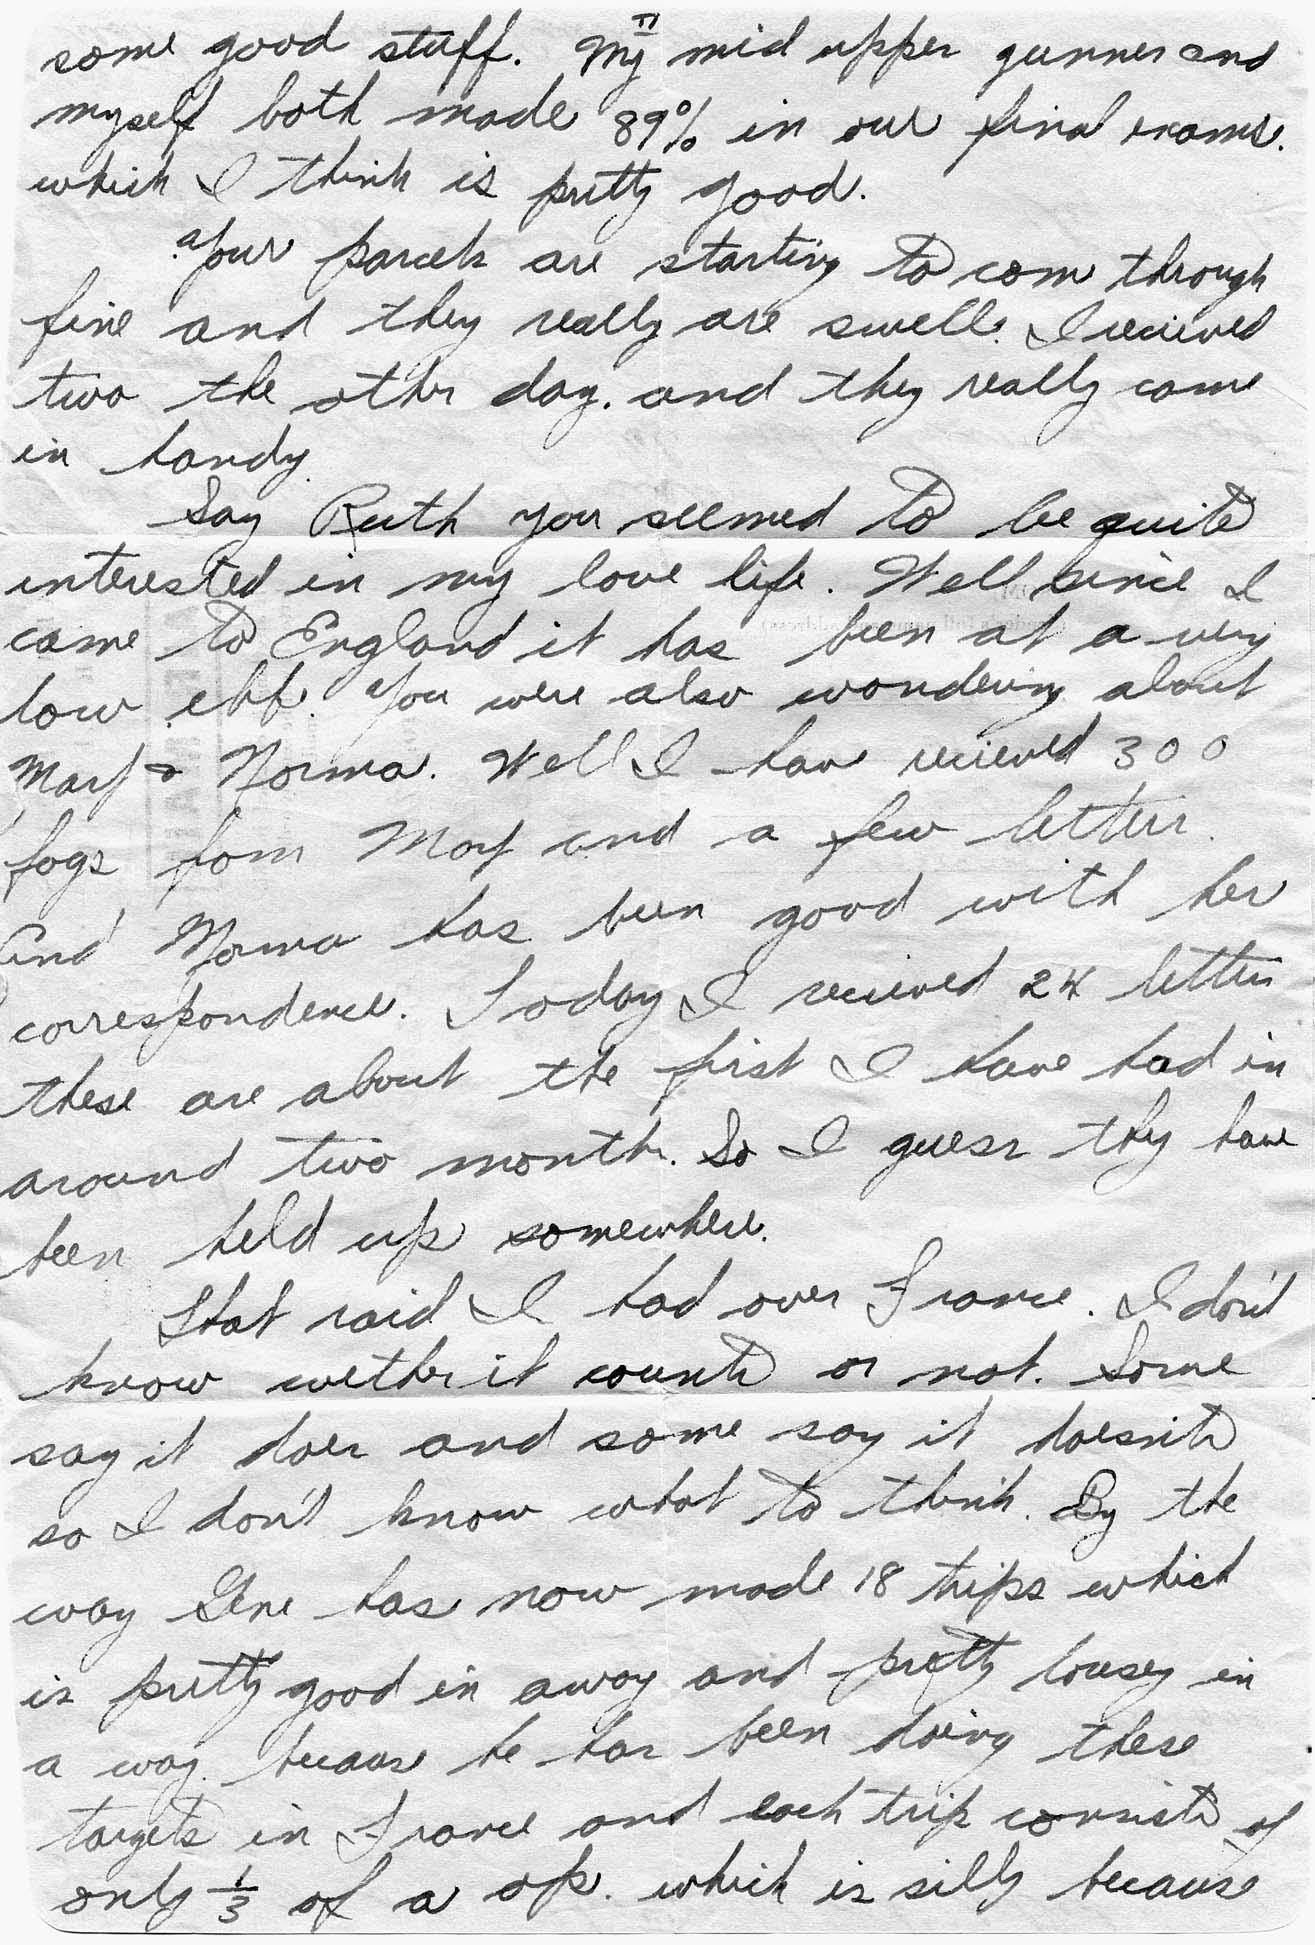 some good stuff. My mid upper gunner and
myself both made 89% in our final exams.
which I think is pretty good.
Your parcels are starting to com through
fine and they really are swell. I recieved
two the other day. and they really come
in handy.
Say Ruth you seemed to be quite
interested in my love life. Well since I
came to England it has been at a very
low ebb. You were also wondering about
Marf & Norma. Well I have recieved 300
fags fom Marf and a few letters.
And Norma has been good with her
correspondence. Today I recieved 24 letters
these are about the first I have had in
around two months. So I guess they have
been held up somewhere.
That raid I had over France. I don't
know wether it counts or not. Some
say it does and some say it doesn't
so I don't know what to think. By the
way Gene has now made 18 trips which
is pretty good in away and pretty lousey in
a way. because he has been doing these
targets in France and each trip consists of
only 1/3 of a op. which is silly because